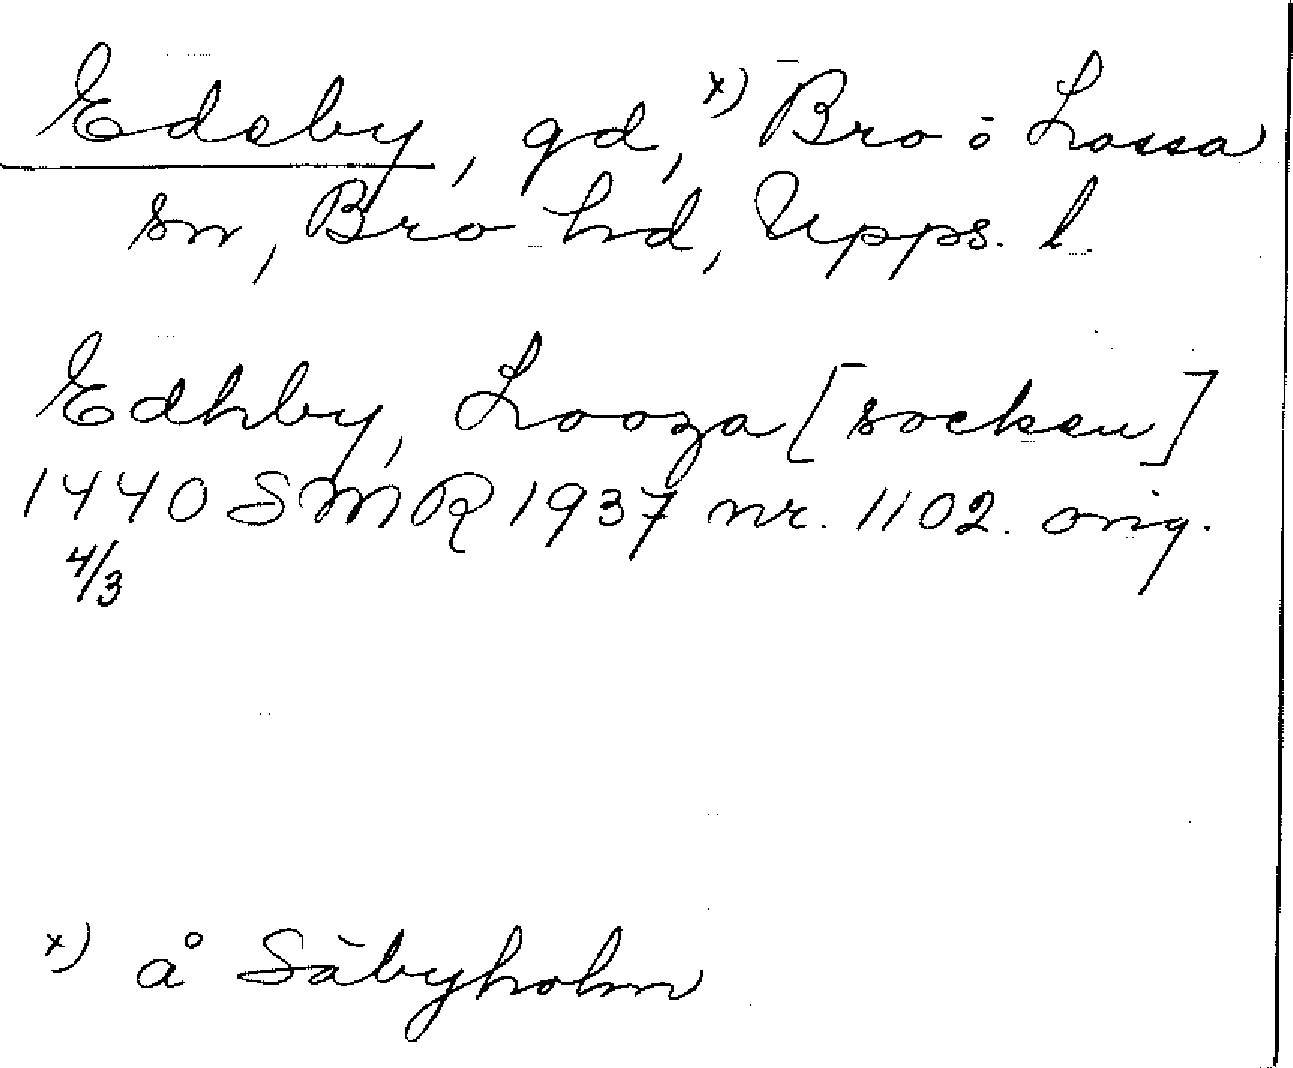 Edeby, gd, x) Bro o Lossa
sn, Bro hd, Upps. l.
Edhby, Looza [socken]
1440 SMR 1937 nr. 1102. orig.
4/3
x) å Säbyholm